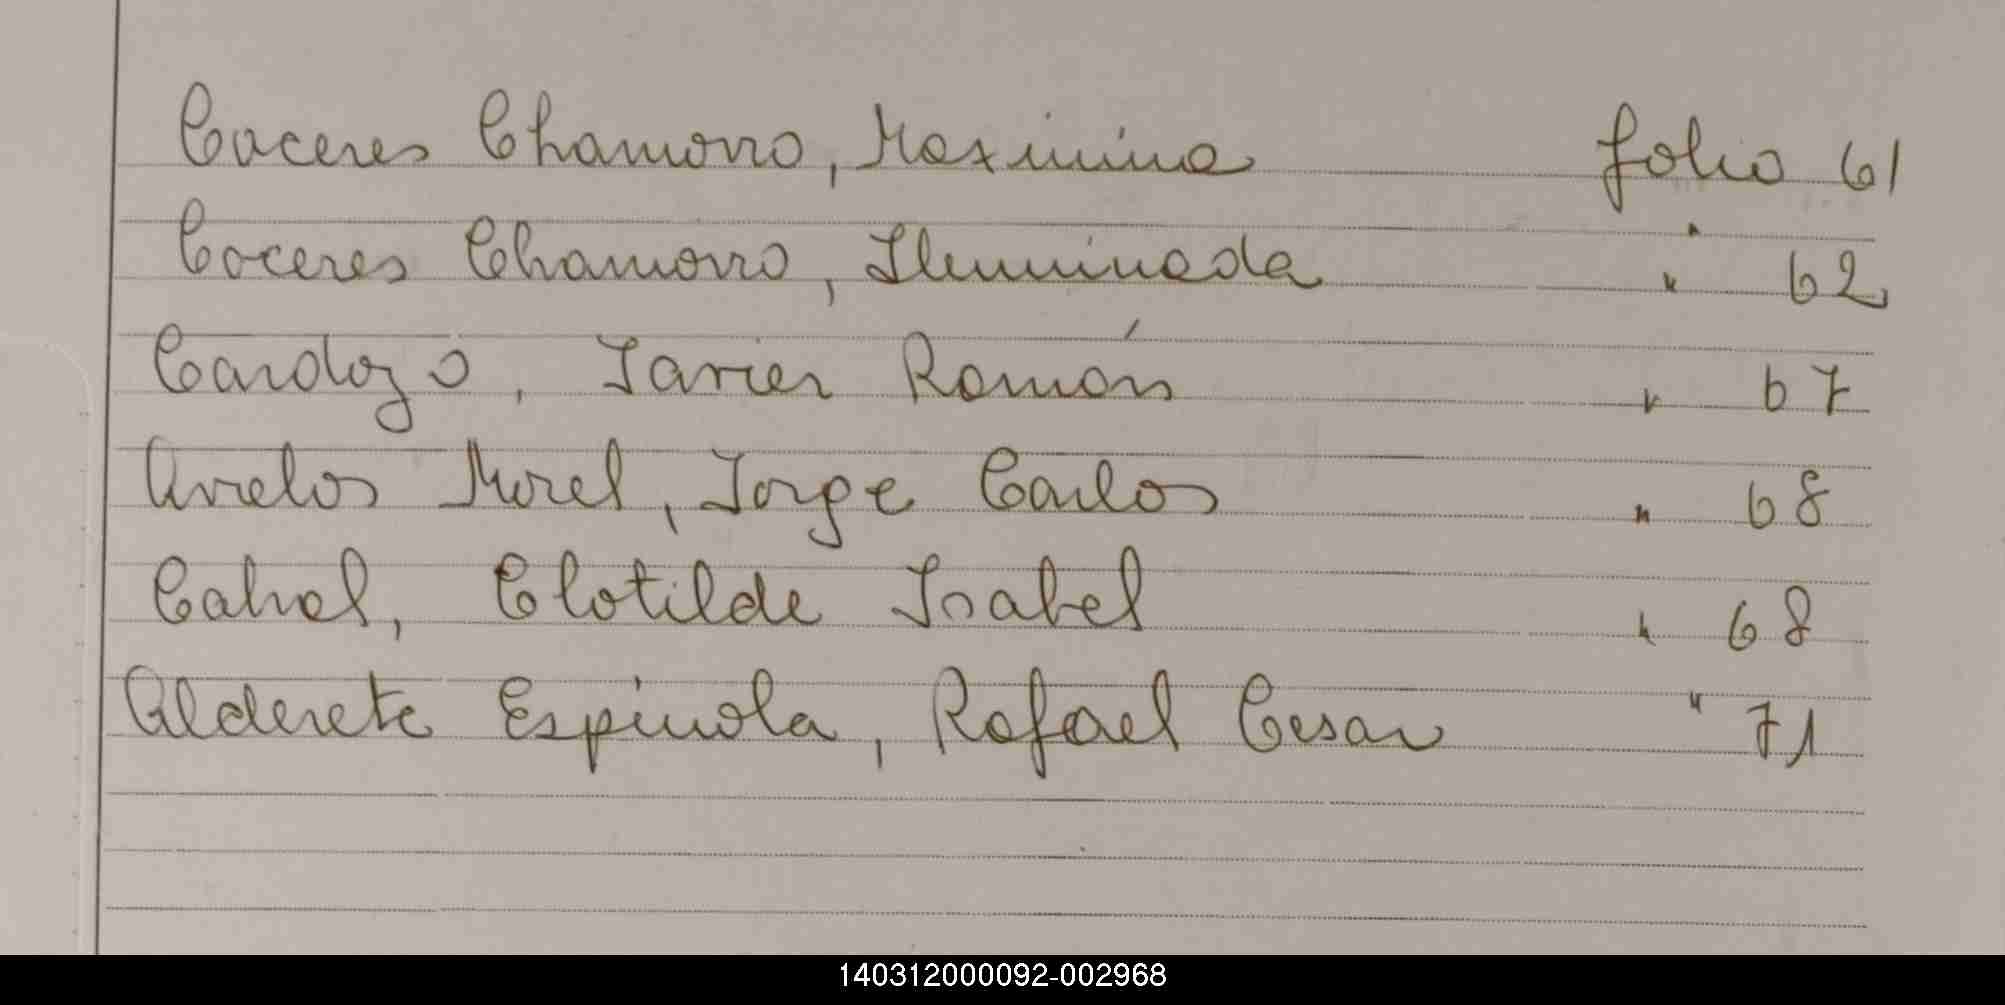 Caceres Chamorro, Maximina folio 61
Caceres Chamorro, Iluminada " 62
Cardozo, Javier Ramón " 67
Avalos Morel, Jorge Carlos " 68
Cabral, Clotilde Isabel " 68
Alderete Espinola, Rafael Cesar " 71
140312000092-002968